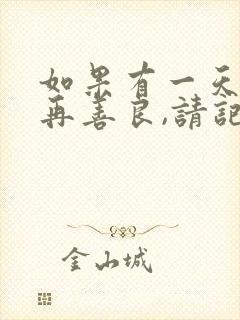 如果有一天
再善良,請記
金山城